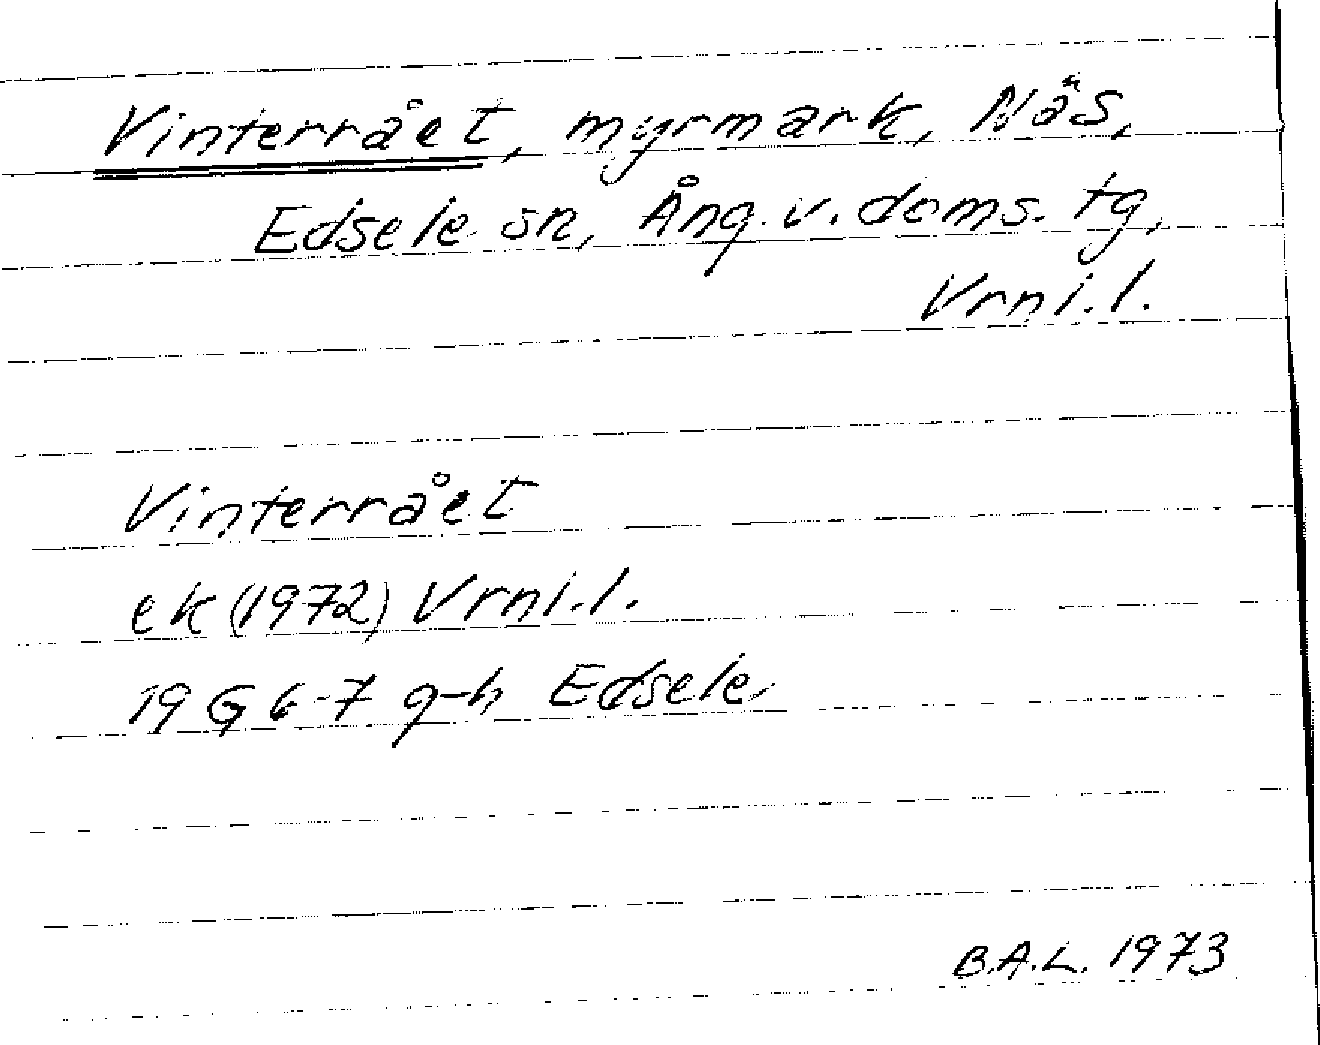 Vinterrået, myrmark, Näs,
Edsele sn, Ång. v. doms. tg,
Vrnl.l.
Vinterrået
ek (1972) Vrnl.l.
19 G 6-7 g-h Edsele
B.A.L. 1973